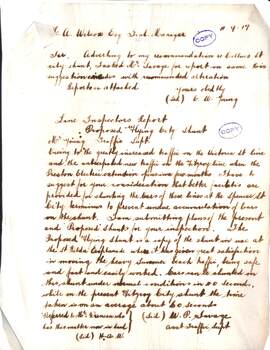 C. A. Wilcox Esq Manager
COPY
4.17
Sir, Adverting to my recommendation re Collins St
city shunt, I asked Mr Savage for report on same. His
suggestion recommended alteration
Report is attached
Yours obdtly
(Sd) Young
COPY
Line Inspectors Report
Proposed Flying City Shunt
Mr Young Traffic Supt.
Owing to the greatly increased traffic on the Victoria St line
and the anticipated new traffic on the Fitzroy line when the
Preston Electric extension months I have to
suggest for your consideration that better facilities are
provided for shunting the cars of these lines at the
City terminus to prevent undue accumulations of cars
on the shunt. I am submitting plans of the present
and Proposed Shunts for your inspection. The
Proposed Flying Shunt is a copy of the shunt in use at
the St Kilda Esplanade which gives great satisfaction
in moving the heavy Summer beach traffic, being safe
and fast and easily worked. Cars can be shunted on
this shunt under normal conditions in 20 second,
while on the present Fitzroy City shunt the time
taken is on an average about 60 seconds
Referred to Mr
has this matter now in hand
(Sd) W. P. Savage
Asst Traffic Supt
(Sd) H.A.W.